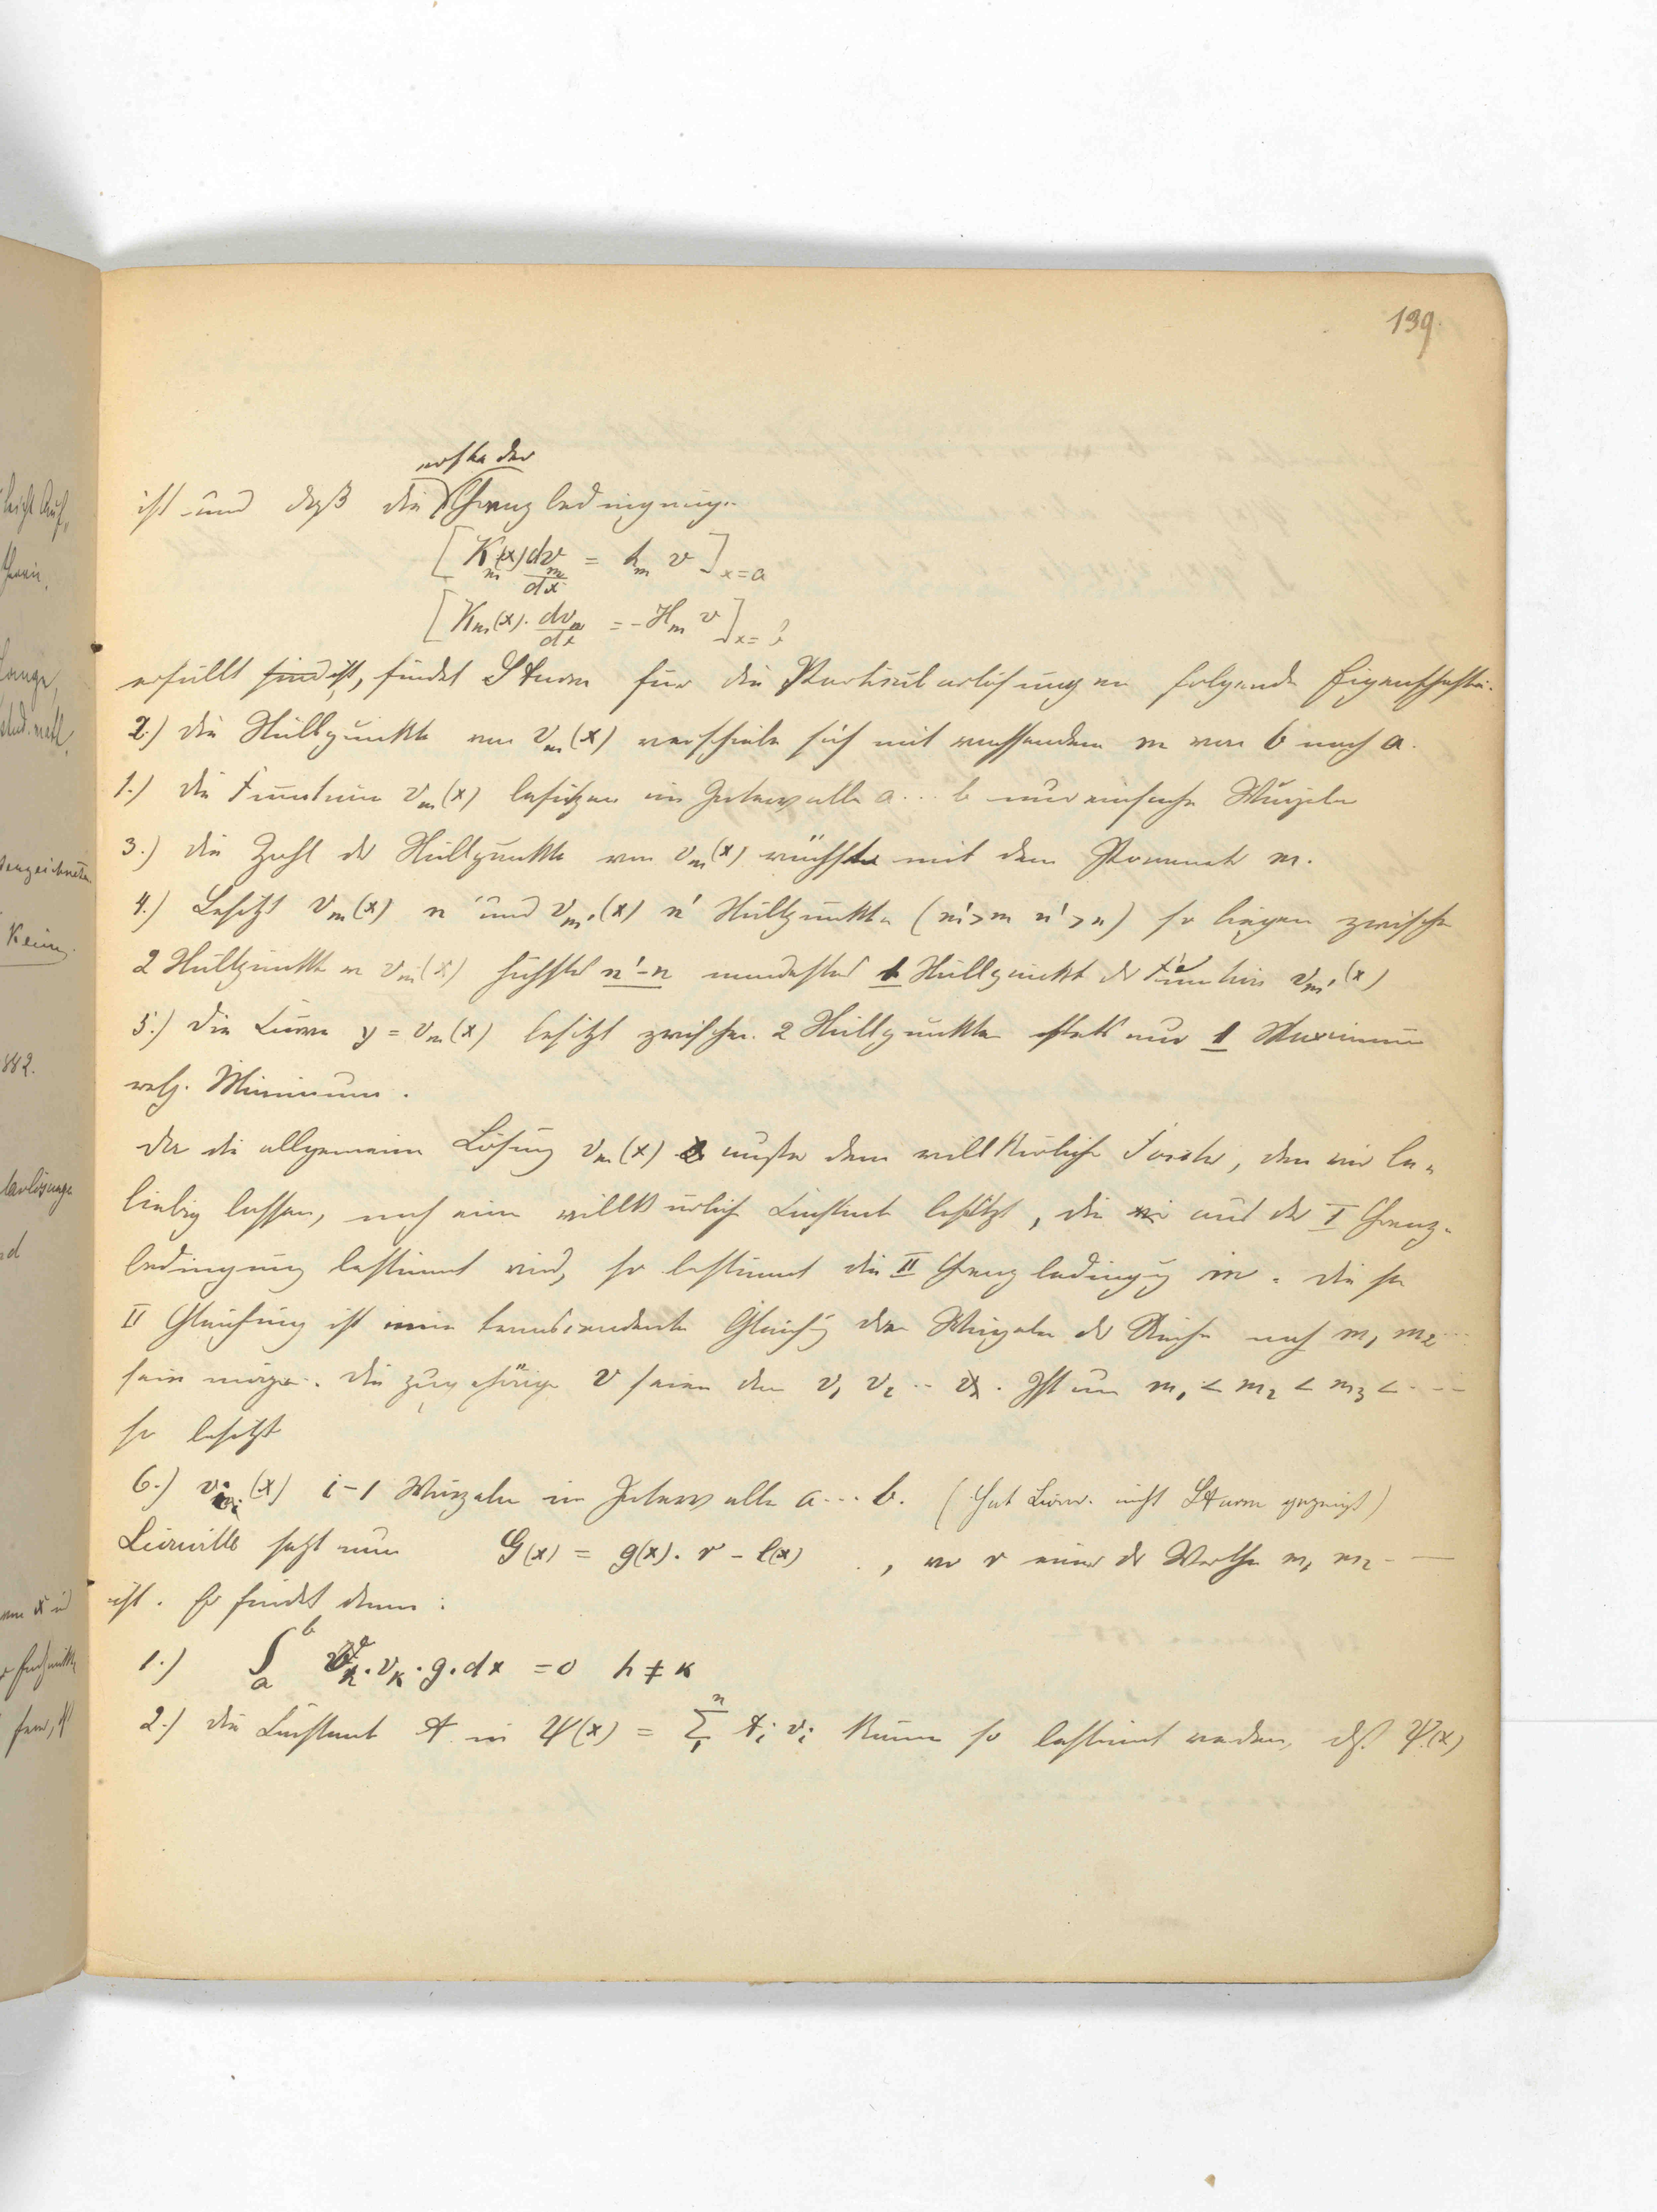 139.
erste der
ist und daß die Grenzbedingung.
[K_m(x) dv_m/dx = h_m v]_x=a
[K_m(x). dv_m/dx = - H_m v]_x=b
erfüllt sind ist, findet Sturm für die Partikularlösungen folgende Eigenschafte.
2.) die Nullpunkte von v_m(x) verschieben sich mit wachsendem m von b nach a.
1.) die Funktion v_m(x) besitzen im Intervalle a... b nur einfache Wurzeln
3.) die Zahl der Nullpunkte von v_m(x) wächst mit dem Parameter m.
4.) Besitzt v_m(x) n und v_m'(x) n' Nullpunkte (m'>m n'>n) so liegen zwischen
2 Nullpunkten v_m(x) höchstens n'-n mindestens 1 Nullpunkt der Funktion v_m'(x)
5.) Die Curve y = v_m(x) besitzt zwischen 2 Nullpunkten stets nur 1 Maximum
resp. Minimum.
Da die allgemeine Lösung v_m(x) außer dem willkürlichen Factor, den wir be-
liebig lassen, noch eine willkürliche Constante besitzt, die aus der I Grenz-
bedingung bestimmt wird, so bestimmt die II Grenzbedingung m. Diese
II Gleichung ist eine transcendente Gleichg deren Wurzeln der Reihe nach m_1 m_2 ...
sein mögen. Die zugehörigen v seien dann v_1 v_2 ... Ist nun m_1 < m_2 < m_3 < ...
so besitzt
6.) v_i(x) i-1 Wurzeln im Intervalle a... b. (Hat Liouv. nicht Sturm gezeigt)
Liouville setzt nun G(x) = g(x). r - l(x) , wo r einer der Werthe m_1 m_2 ...
ist. Er findet dann:
1.) ∫_a^b v_h. v_k. g. dx = 0 h ≠ k
2.) die Constante A in Ψ(x) = Σ_1^n A_i v_i können so bestimmt werden, dß Ψ(x)